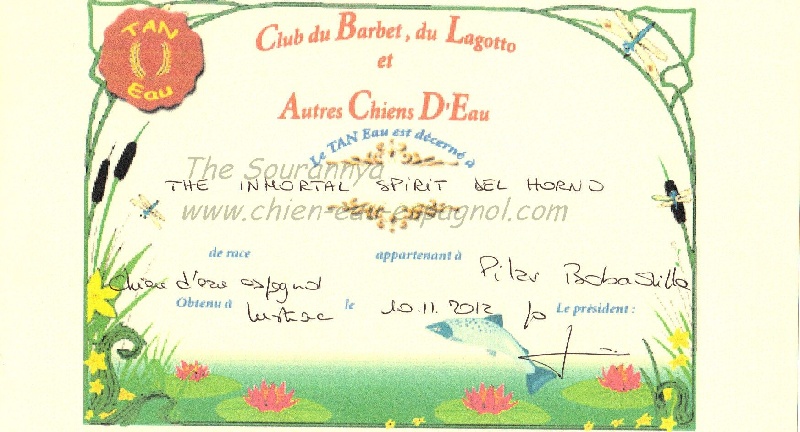 TAN
Eau
Club du Barbet, du Lagotto
et
Autres Chiens D'Eau
Le TAN Eau est décerné à
The Sourannya
THE INMORTAL SPIRIT DEL HORNO
www.chien-eau-espagnol.com
de race appartenant à Pilar Bobadilla
Chien d'eau espagnol
Obtenu à le 10.11.2012 Le président :